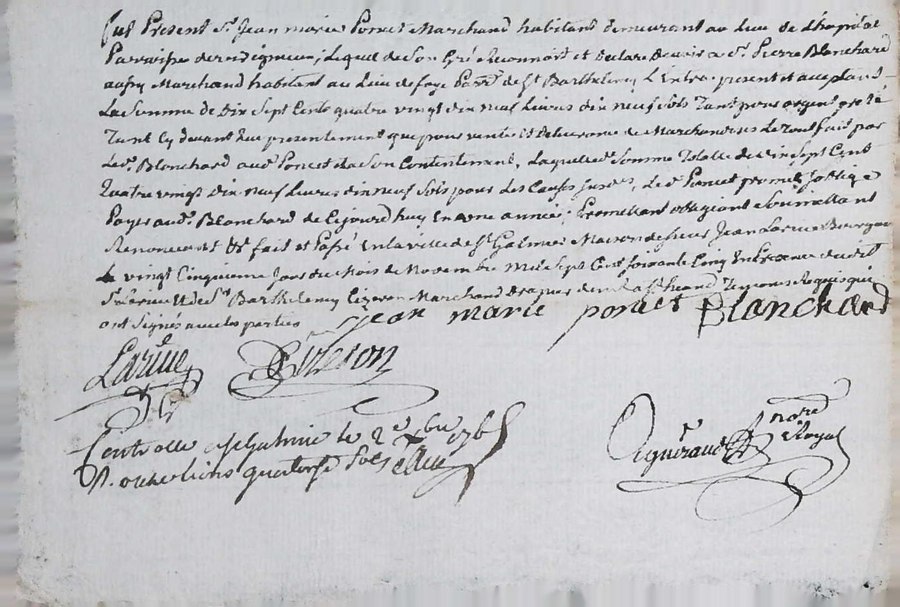 fut Present Sr. Jean marie Poncet Marchand habitant demeurant au lieu de Lhopital
Paroisse de           ; Lequel de son Gré Reconnoit et Declare Devoir a Sr. Pierre Blanchard
aussy Marchand habitant au Lieu de        Parr. de St Barthelemy L'Estra present et acceptant
La Somme de Dix Sept Cents quatre vingt dix neuf Livres dix neuf sols Tant pour argent preté
Tant Cy devant que presentement que pour vente et delivrance de Marchandises Le Tout fait par
Led. Blanchard aud. Poncet da Son Contentement; Laquelle Somme Totalle de dix Sept Cents
Quatre vingt dix neuf Livres dix neuf Sols pour Les Causes susd., Led. Poncet promet s'oblige
Payer aud. Blanchard de Cejourd'huy En une année; Promettant obligeant Soumettant
Renonceant &c fait et Passé En la ville de St. Galmier Maison de sieur Jean Larue Bourgeois
Le vingt Cinquieme Jour du Mois de Novembre Mil Sept Cent soixante Cinq En Presence dudit
Sr. Larue et de Sr. Barthelemy Cizeron Marchand Drapier                Temoins Requis qui
ont Signés avec les parties
Jean marie poncet Blanchard
Larüe
BCizeron
Controllé a St Galmier le 2e xbre 1765
R. onze livres quatorze sols
Aguiraud nore
Royal